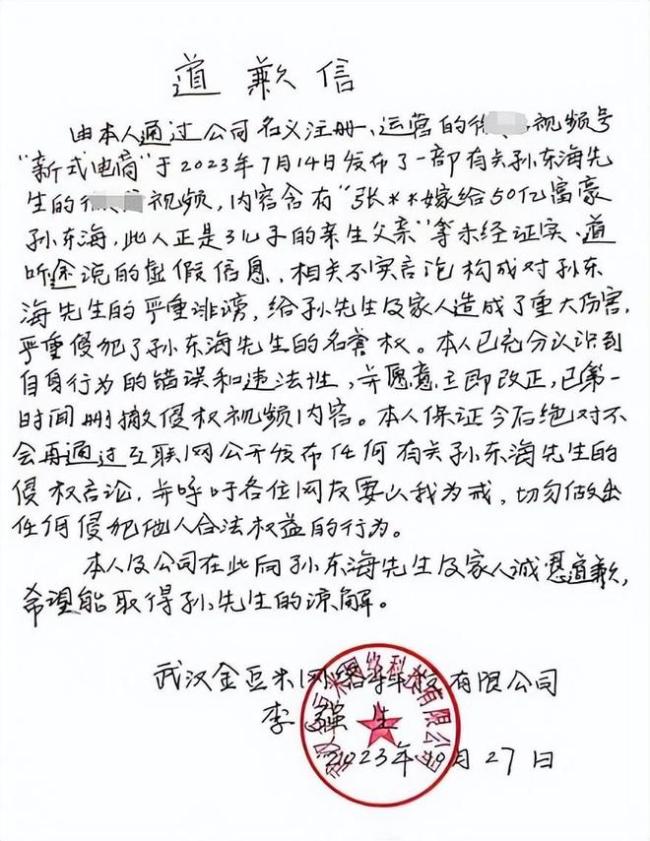 道歉信
由本人通过公司名义注册、运营的视频号
"新式电商"于2023年7月14日发布了一部有关孙东海先
生的视频，内容含有"张**嫁给50亿富豪
孙东海，此人正是3儿子的亲生父亲"等未经证实、道
听途说的虚假信息，相关不实言论构成对孙东
海先生的严重诽谤，给孙先生及家人造成了重大伤害，
严重侵犯了孙东海先生的名誉权。本人已充分认识到
自身行为的错误和违法性，并愿意立即改正，已第一
时间删撤侵权视频内容。本人保证今后绝对不
会再通过互联网公开发布任何有关孙东海先生的
侵权言论，并呼吁各位网友要以我为戒，切勿做出
任何侵犯他人合法权益的行为。
本人及公司在此向孙东海先生及家人诚恳道歉，
希望能取得孙先生的谅解。
武汉金豆米网络科技有限公司
李强生
2023年10月27日